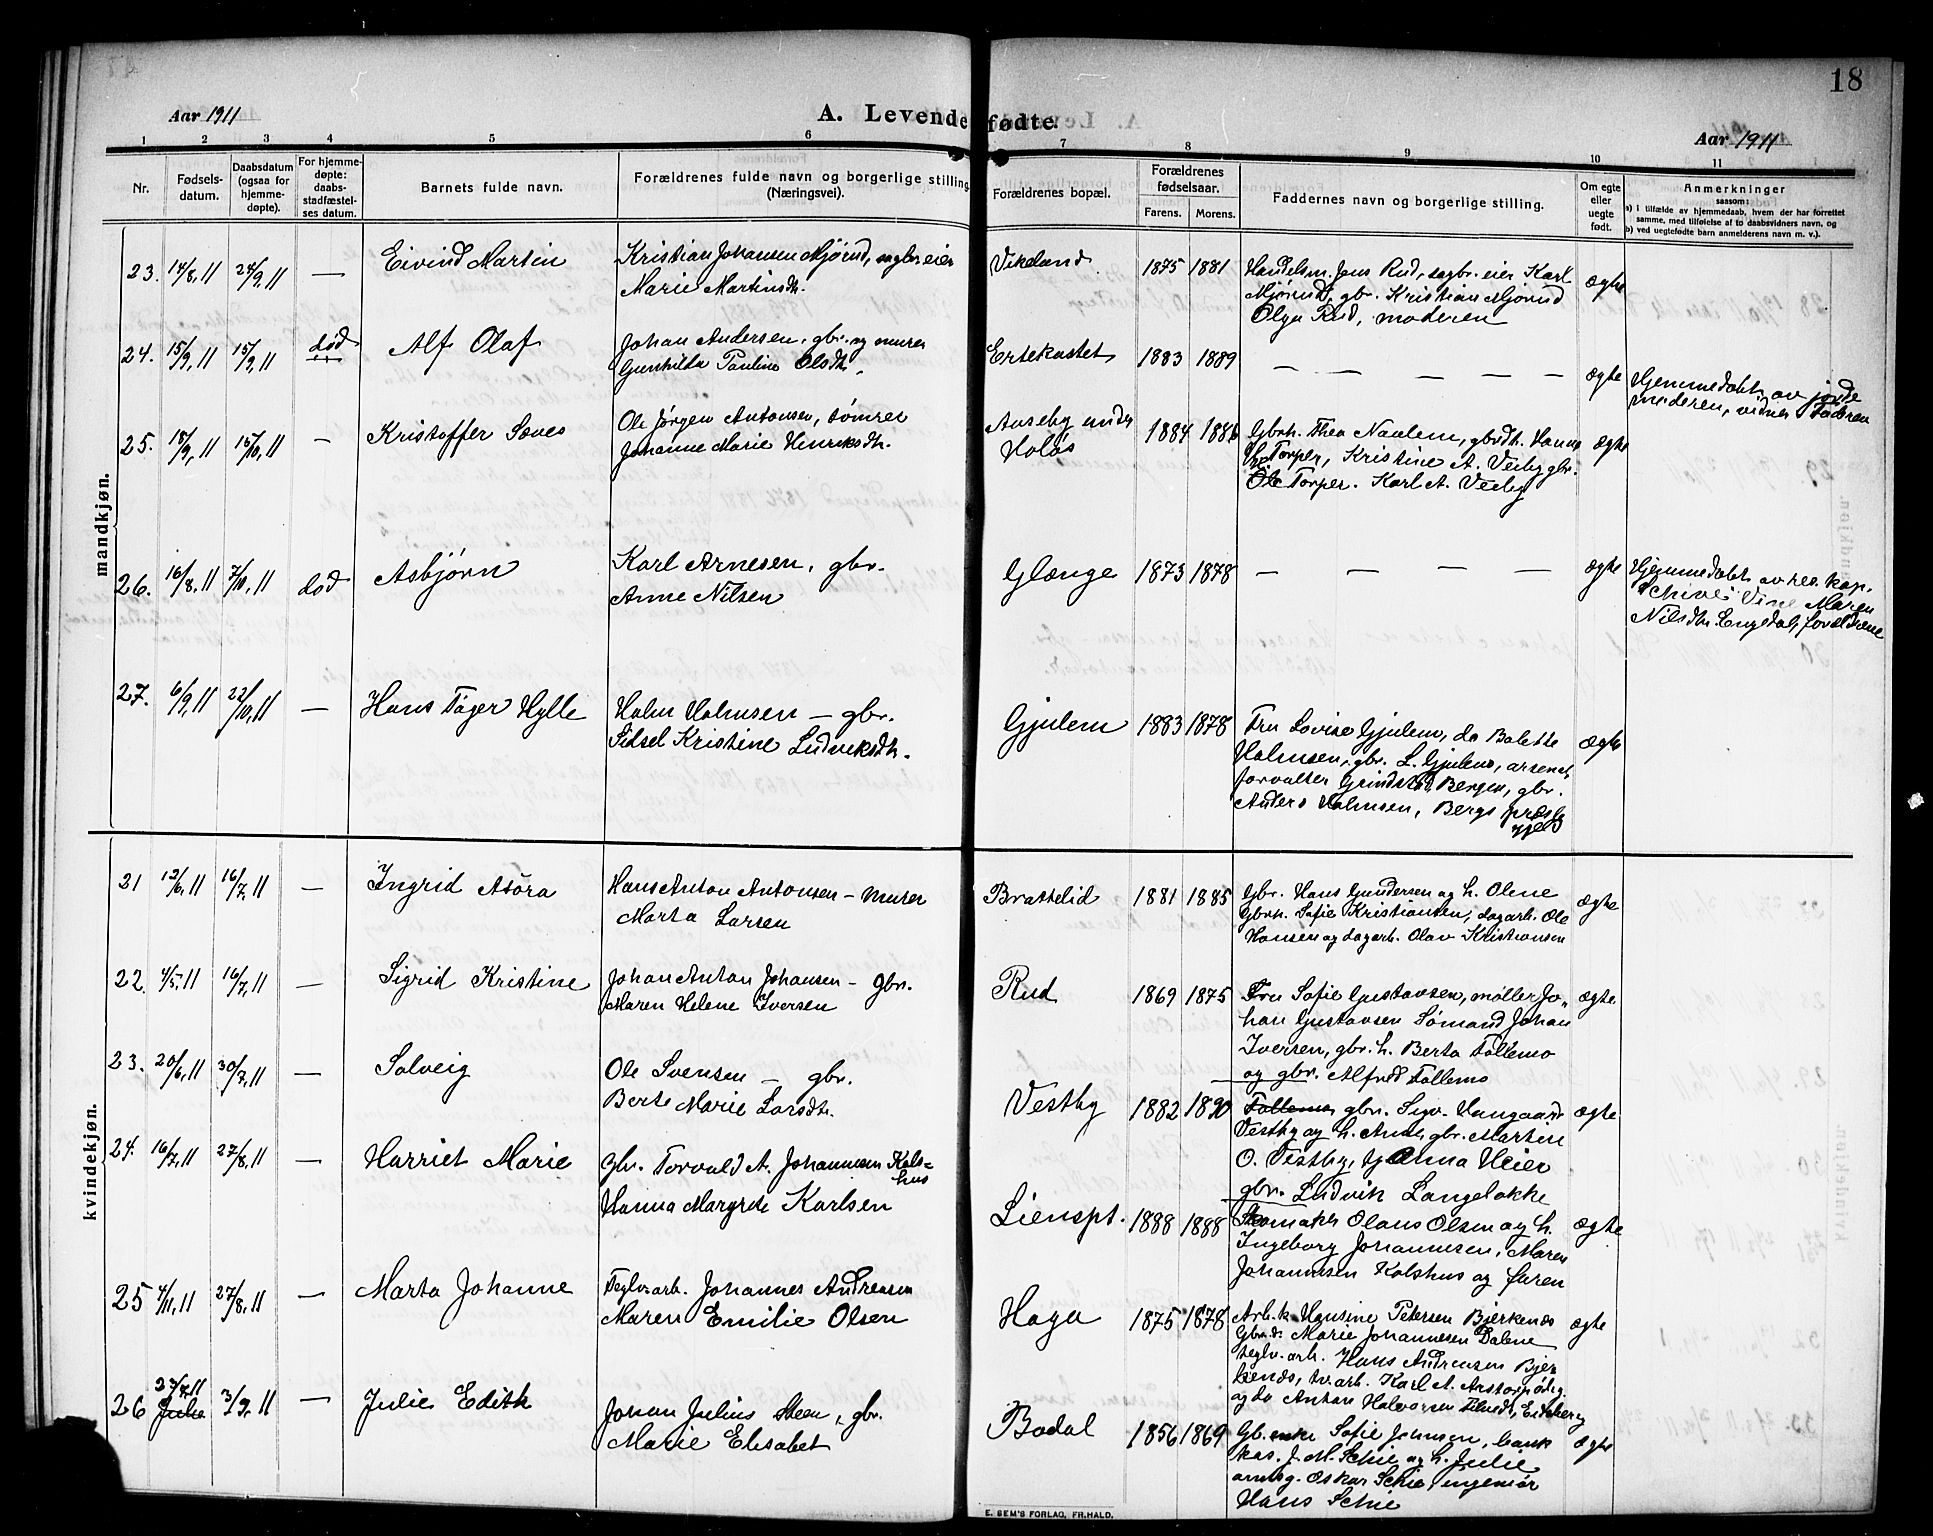 18
Aar 1911
A. Levendefødte.
Aar 1911
1 2 3 4 5 6 7 8 9 10 11
Nr.
Fødsels-
datum.
Daabsdatum
(ogsaa for
hjemme-
døpte).
For hjemme-
døpte:
daabs-
stadfæstel-
ses datum.
Barnets fulde navn.
Forældrenes fulde navn og borgerlige stilling
(Næringsvei).
Forældrenes bopæl.
Forældrenes
fødselsaar.
Farens. Morens.
Faddernes navn og borgerlige stilling.
Om egte
eller
uegte
født.
Anmerkninger
saasom:
a) i tilfælde av hjemmedaab, hvem der har forrettet
samme, med tilføielse af to daabsvidners navn, og
b) ved uegtefødte barn anmelderens navn m. v.).
mandkjøn.
23. 14/8, 11 24/9, 11 — Eivind Martin
Kristian Johansen Mjørud, sagbr.eier
Marie Martinsdtr.
Vikeland 1875 1881
Handelsm. Jens Rud, sagbr. eier Karl
Mjørud, gbr. Kristian Mjørud
Olga Rud, moderen
ægte
24. 15/9, 11 15/9, 11 død Alf Olaf
Johan Andersen, gbr. og murer
Gunhilda Pauline Olsdtr.
Ertekastet 1883 1889 — — — — — ægte
Hjemmedøbt av jorde
moderen, vidner Faderen
25. 18/9, 11 15/10, 11 — Kristoffer Sæves
Ole Jørgen Antonsen, tømrer
Johanne Marie Henriksdtr.
Anseby under
Holøs
1884
Gbrh. Thea Navlem, gbrdtr. Hanna
Torper, Kristine A. Veiby gbr.
Ole Torper. Karl A. Veiby
ægte
26. 16/8, 11 7/10, 11 død Asbjørn
Karl Arnesen, gbr.
Anne Nilsen
Glænge 1873 1878 — — — — — ægte
Hjemmedøbt av res. kap.
Schive Vine Maren
Nilsdtr. Engedal, forældrene
27. 6/9, 11 22/10, 11 — Hans Tøger Hylle
Halm Halmsen — gbr.
Sidsel Kristine Ludviksdtr.
Gjulem 1883 1878
Fru Lovise Gjulem, do Bolette
Halmsen, gbr. L. Gjulem, arsenal
forvalter Grindstad, Bergen, gbr.
Anders Halmsen, Bergs præste
gjeld
ægte
kvindekjøn.
21 12/6, 11 16/7, 11 — Ingrid Asora
Hans Anton Antonsen — murer
Marta Larsen
Brattelid 1881 1885
Gbr. Hans Gundersen og h. Oline
Gbrh. Sofie Kristiansen, dagarb. Ole
Hansen og dagarb. Olav Kristiansen
ægte
22. 4/5, 11 16/7, 11 — Sigrid Kristine
Johan Anton Johansen — Gbr.
Maren Helene Iversen
Rud 1869 1875
Fru Sofie Gustavsen, møller Jo-
han Gustavsen Sømand Johan
Iversen, gbr. h. Berta Tollemo
og gbr. Alfred Tollemo
ægte
23. 20/6, 11 30/7, 11 — Solveig
Ole Svensen — gbr.
Berte Marie Larsdtr.
Vestby 1882 1890
Tollemo, gbr. Sigv. Haugaard
Vestby og h. Anne, gbr. Martin
O. Vestby, Anna Heier
gbr. Ludvik Langeløkke
ægte
24. 16/7, 11 27/8, 11 — Harriet Marie
Gbr. Torvald A. Johannesen Kols-
hus
Hanna Margrete Karlsen
Lienspl. 1888 1888
Skomaker Olaus Olsen og h.
Ingeborg Johannesen, Maren
Johannesen Kolshus og faren
ægte
25 4/11, 11 27/8, 11 — Marta Johanne
Teglv.arb. Johannes Andreasen
Maren Emilie Olsen
Haga 1875 1878
Arb.k. Hansine Petersen Bjerkenes
Gbr.d. Marie Johannesen Dalene
teglv. arb. Hans Andreasen Bjer
kenes, tv.arb. Karl A. Arstorpødeg.
og do Anton Halvorsen Eidsberg
ægte
26 27/7 11 Julie 3/9, 11 — Julie Edith
Johan Julius Steen, gbr.
Marie Elisabet
Bodal 1856 1869
Gb. enke Sofie Jensen, bank
kas. J. M. Schie og h. Julie
Oskar Schie ingeniør
Hans Schie
ægte
E. SEM'S FORLAG, FR.HALD.